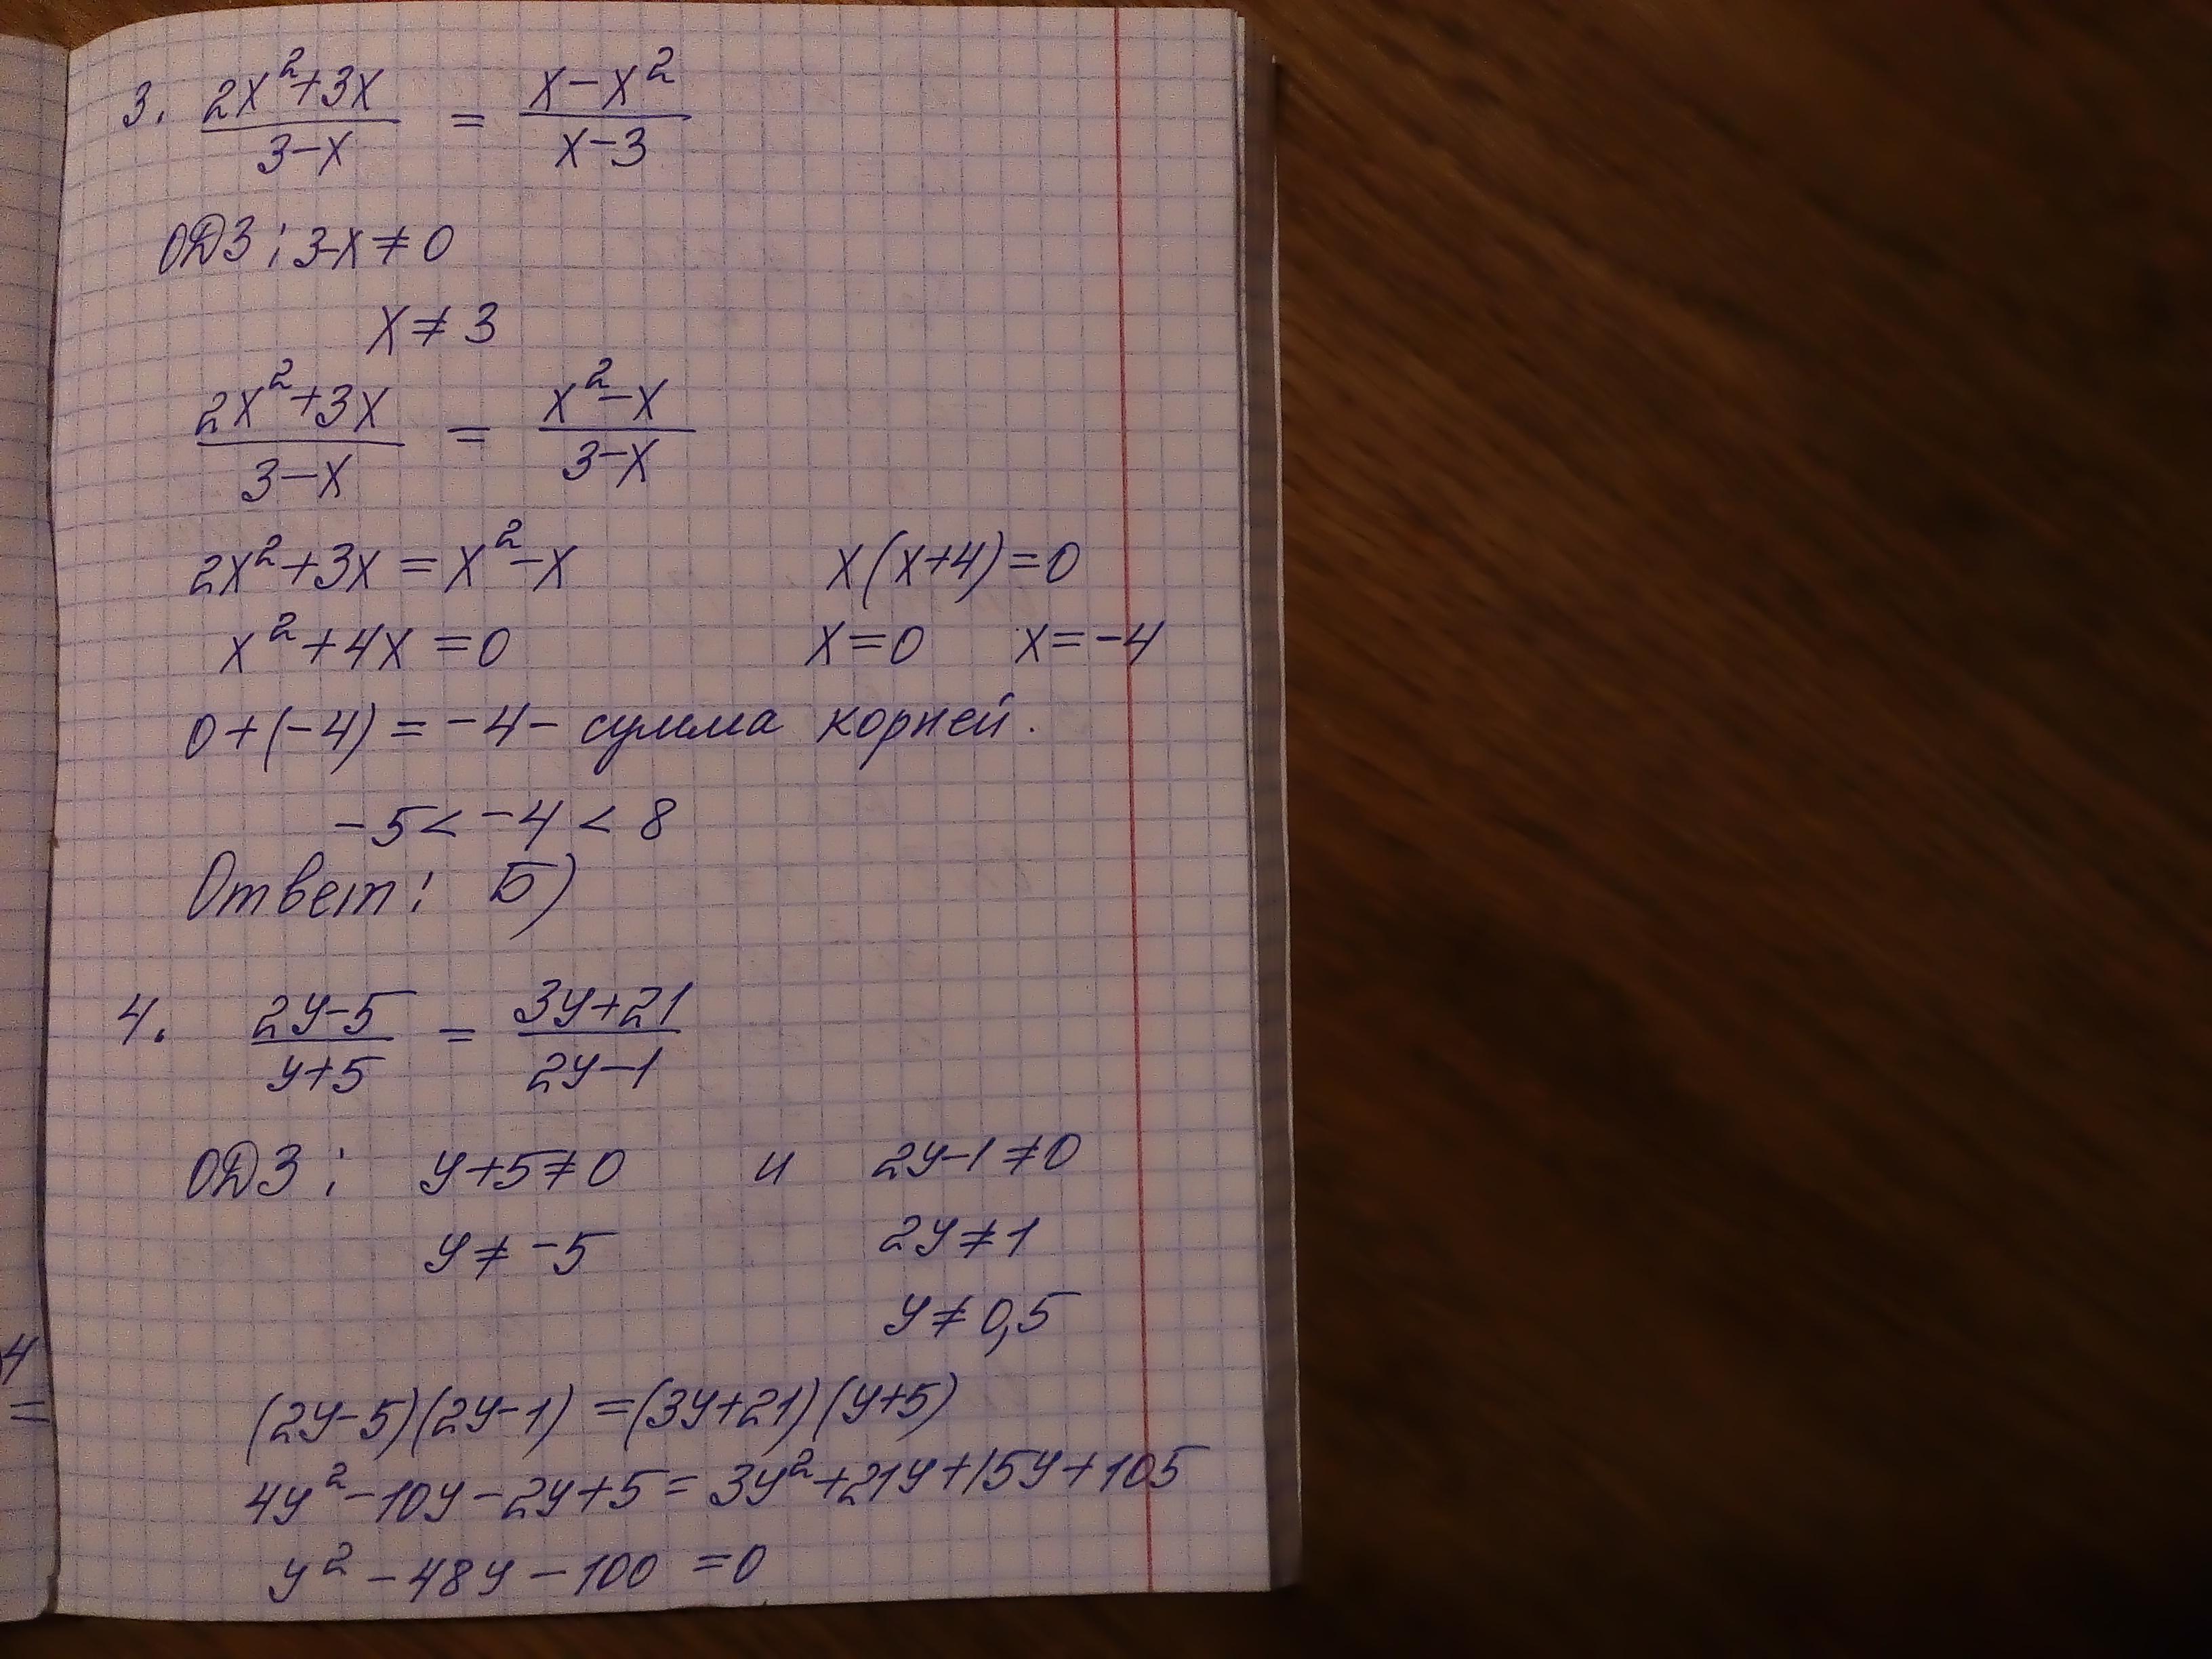 3. (2x²+3x)/(3-x) = (x-x²)/(x-3)
ОДЗ: 3-x≠0
x≠3
(2x²+3x)/(3-x) = (x²-x)/(3-x)
2x²+3x=x²-x x(x+4)=0
x²+4x=0 x=0 x=-4
0+(-4)=-4- сумма корней.
-5<-4<8
Ответ: Б)
4. (2y-5)/(y+5) = (3y+21)/(2y-1)
ОДЗ: y+5≠0 и 2y-1≠0
y≠-5 2y≠1
y≠0,5
(2y-5)(2y-1)=(3y+21)(y+5)
4y²-10y-2y+5=3y²+21y+15y+105
y²-48y-100=0
4
=